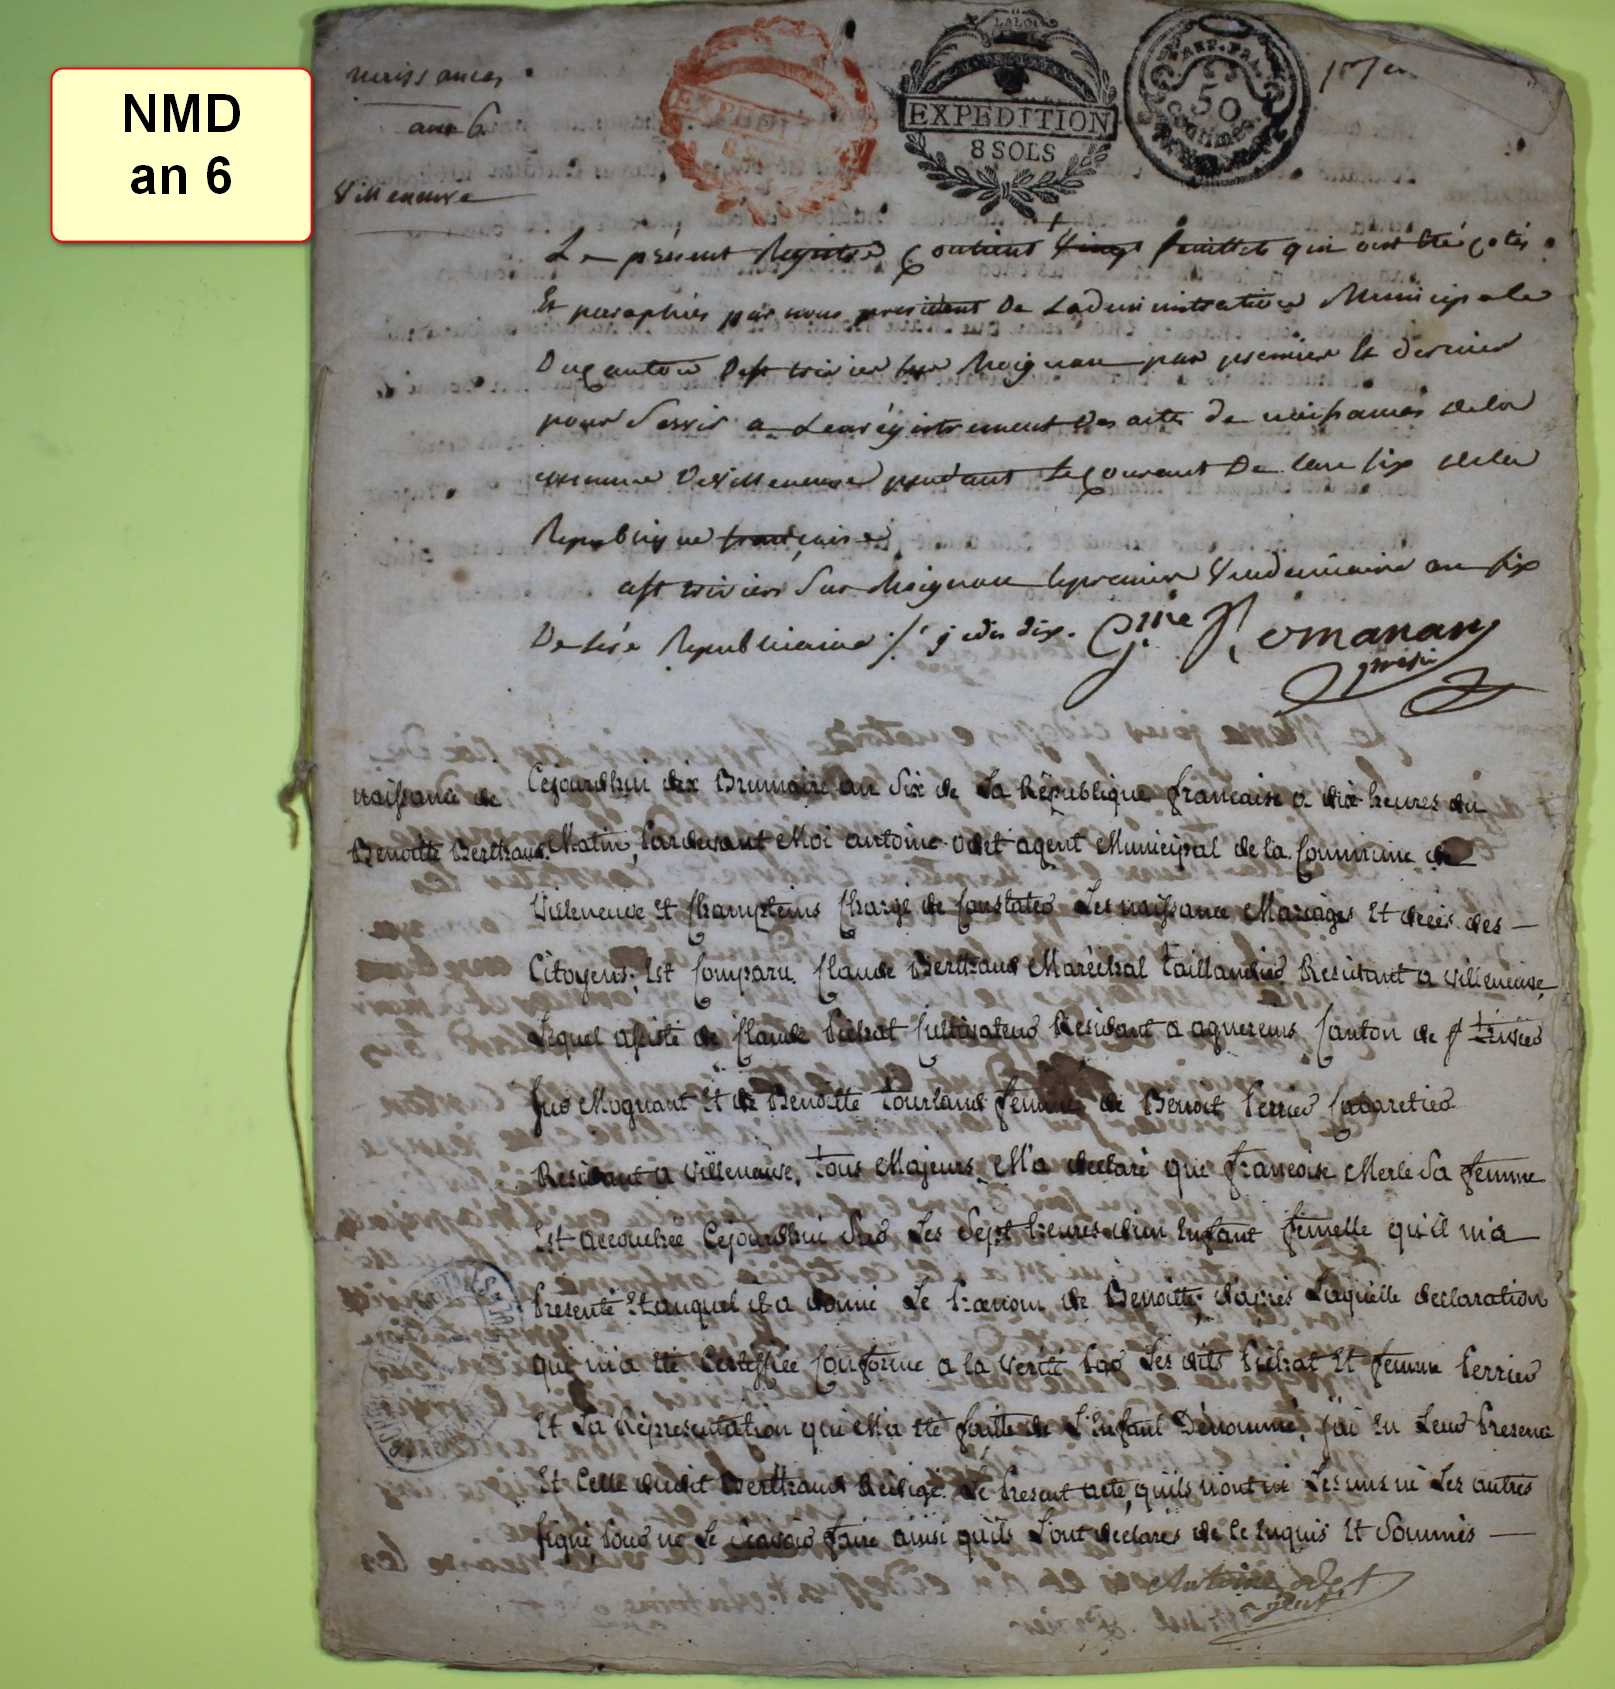 NMD
an 6
naissances
an 6
Villeneuve
LA LOI
EXPEDITION
8 SOLS
EXPEDITION
8 SOLS
50
Centimes
Le présent Registre Contient Vingt feuillets qui ont été cotés
Et paraphés par nous president De Ladministration Municipale
Du Canton De st trivier sur Moignan par premier et dernier
pour Servir a Lenrégistrement Des actes de naissances de la
commune De Villeneuve pendant le Courant De lan six de la
Republique francaise
a st trivier Sur Moignan le premier Vendemiaire an six
De Lère Republicaine
Gme Romanans
presid
naissance de
Benoitte Berthaud
Cejourdhui dix Brumaire an Six de La République francaise a dix heures du
Matin, Pardevant Moi antoine odet agent Municipal de la Commune de
Villeneuve Et Champteins Chargé de Constater Les naissance Mariages Et decès des
Citoyens; Est Comparu Claude Berthaud Maréchal Taillandier Residant a Villeneuve
Lequel assisté de Claude Pichat Cultivateur Residant a agnereins Canton de st trivier
sur Mognant Et de Benoitte Tourland femme de Benoit Perrier Cabaretier
Residant a Villeneuve, tous Majeurs M'a declaré que francoise Merle Sa femme
Est accouchée Cejourdhui Sur Les Sept heures d'un Enfant femelle qu'il m'a
Presenté Et auquel il a donné Le Prenom de Benoitte, d'après Laquelle declaration
qui m'a été Certiffiée Conforme a la Verité Par Les dits Pichat Et femme Perrier
Et La Représentation qui M'a été faitte de L'Enfant Dénommé, j'ai En Leur Presence
Et Celle dudit Berthaud Redigé Le Present acte, qu'ils n'ont ni Les uns ni Les autres
signé Pour ne Le Scavoir faire ainsi qu'ils L'ont declarés de ce Enquis Et Sommés
Antoine odet
agent